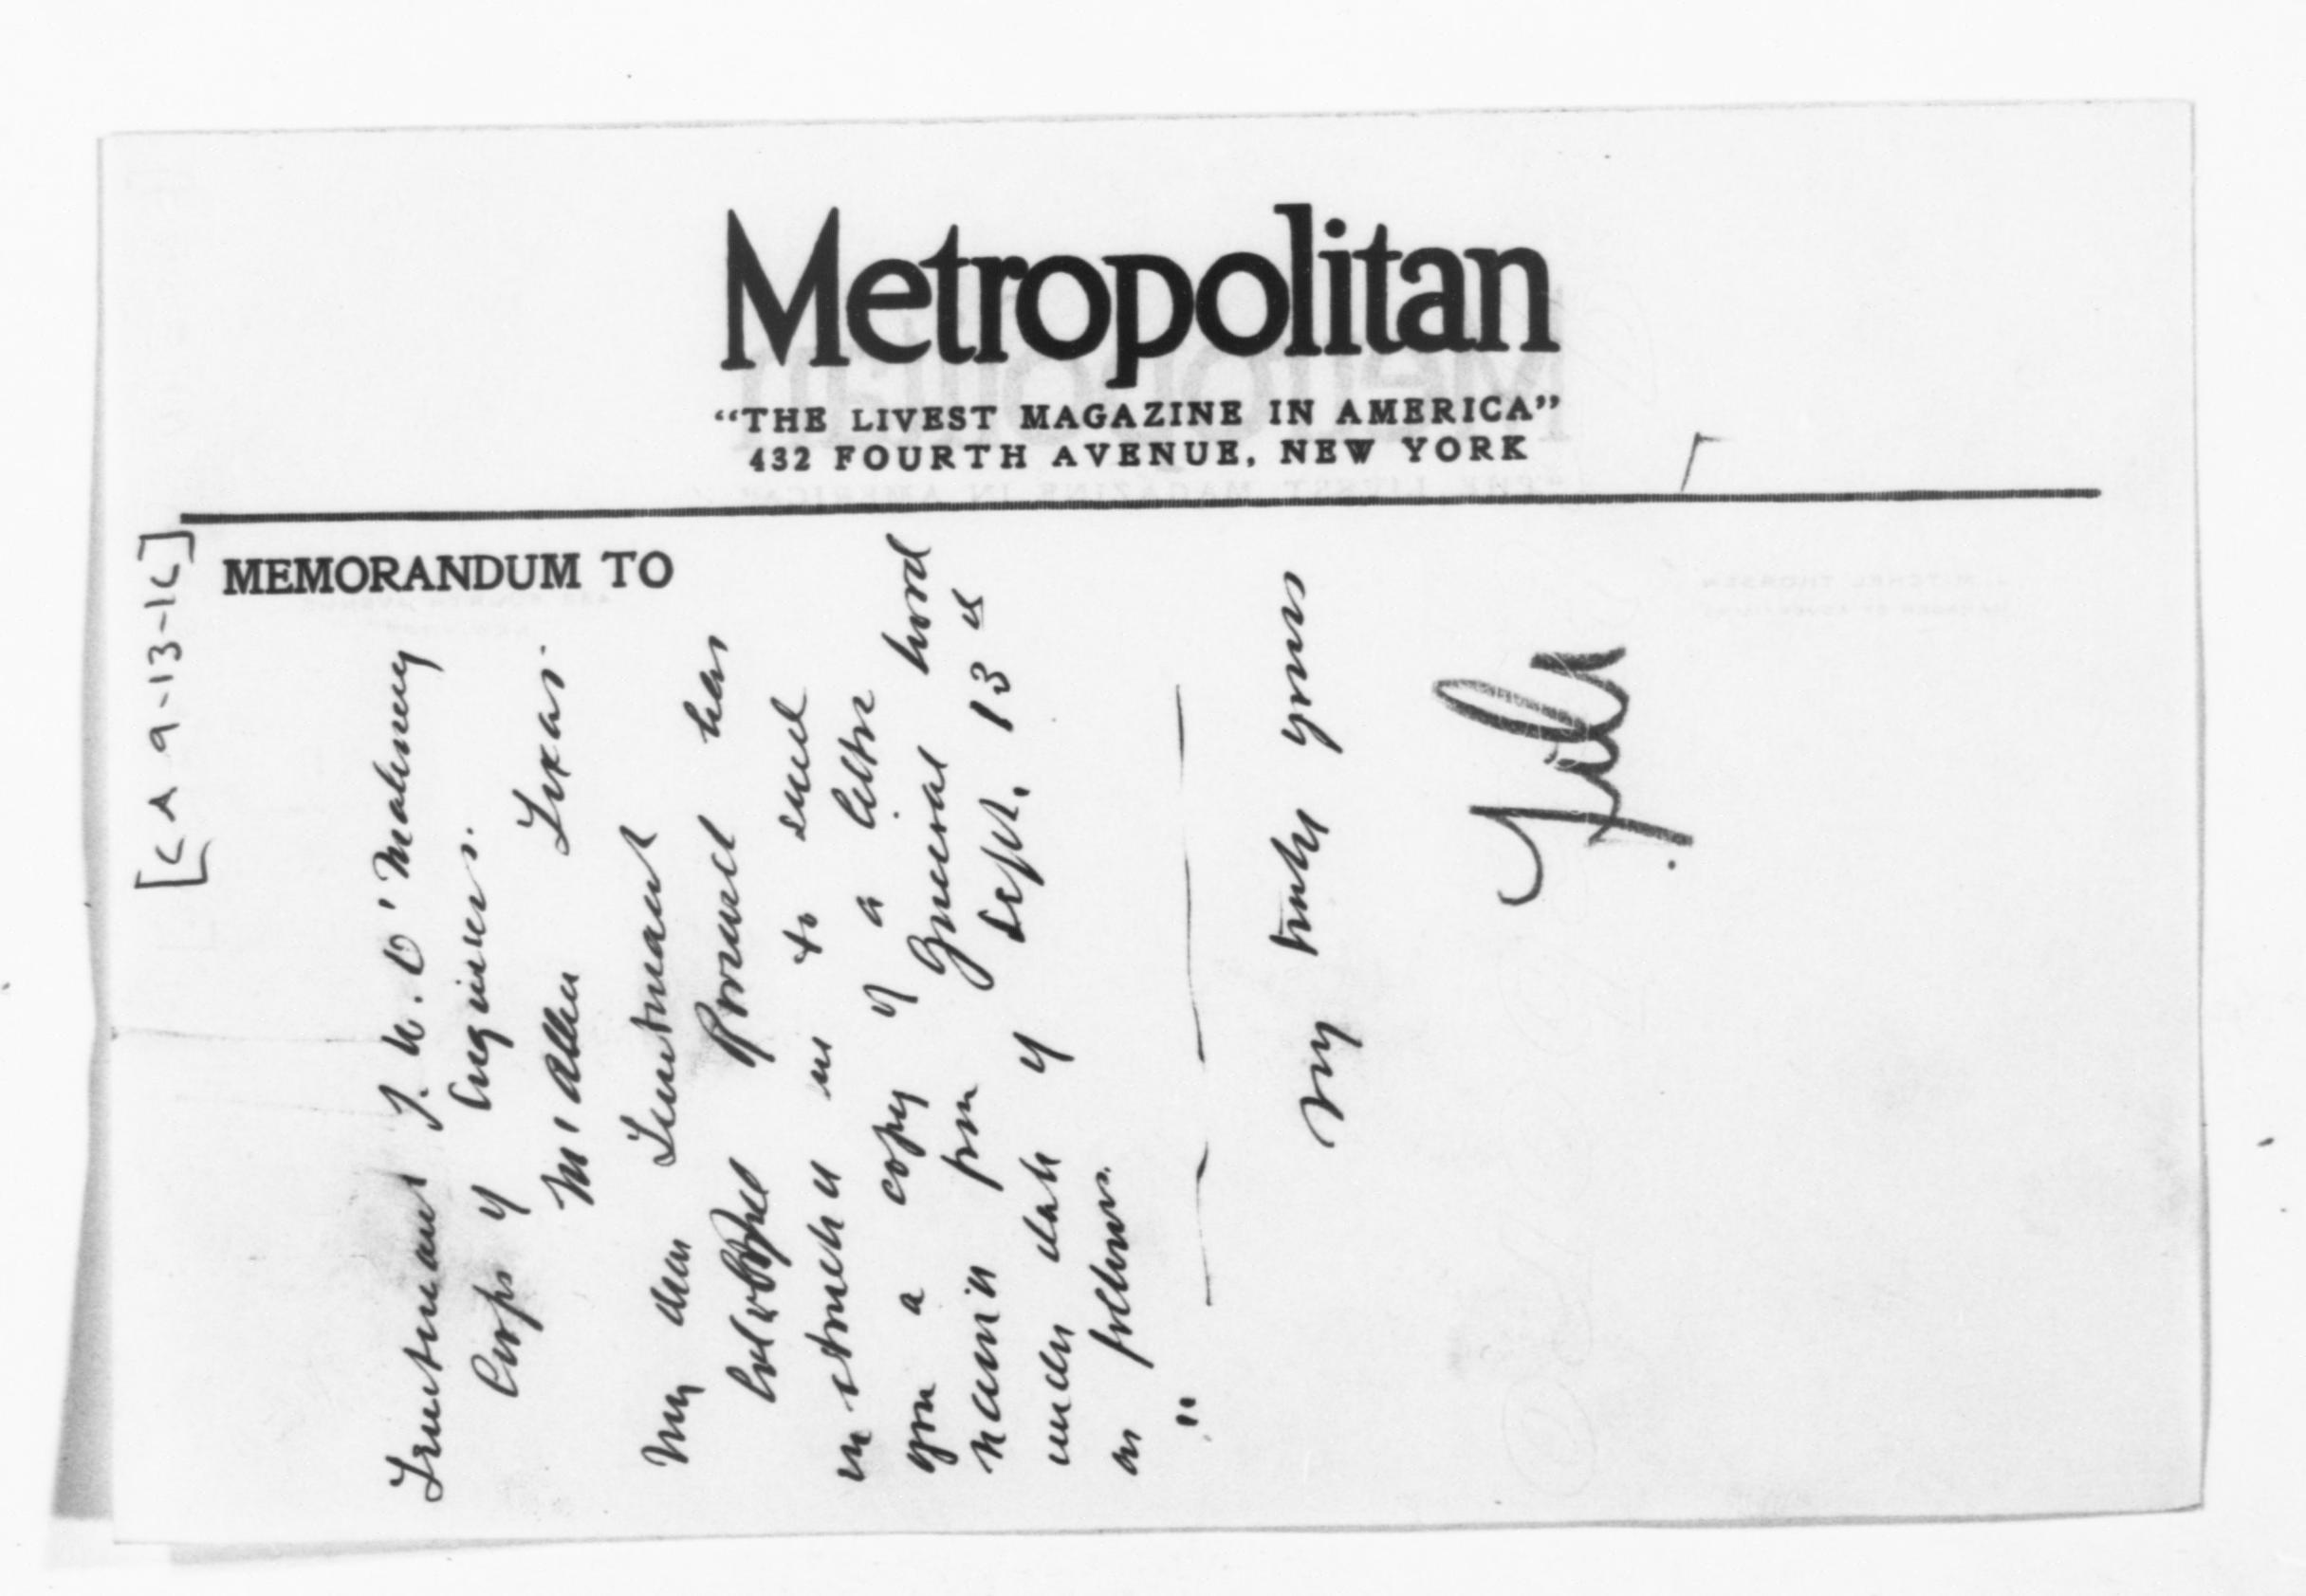 Metropolitan
"THE LIVEST MAGAZINE IN AMERICA"
432 FOURTH AVENUE, NEW YORK
MEMORANDUM TO
[CA 9-13-16]
Lieutenant J. W. O'Mahoney
Corps of Engineers.
McAllen Texas.
My dear Lieutenant
Colonel Roosevelt has
instructed me to send
you a copy of a letter Lord
received from General
under date of Sept. 13th
as follows.
"
Very truly yours
File